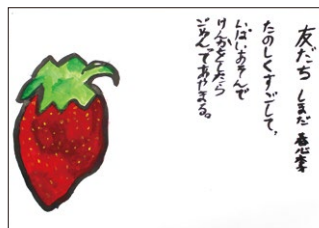 友だち しまだ
たのしくすごして、
いっぱいあそんで
けんかをしたら
ごめんであやまる。